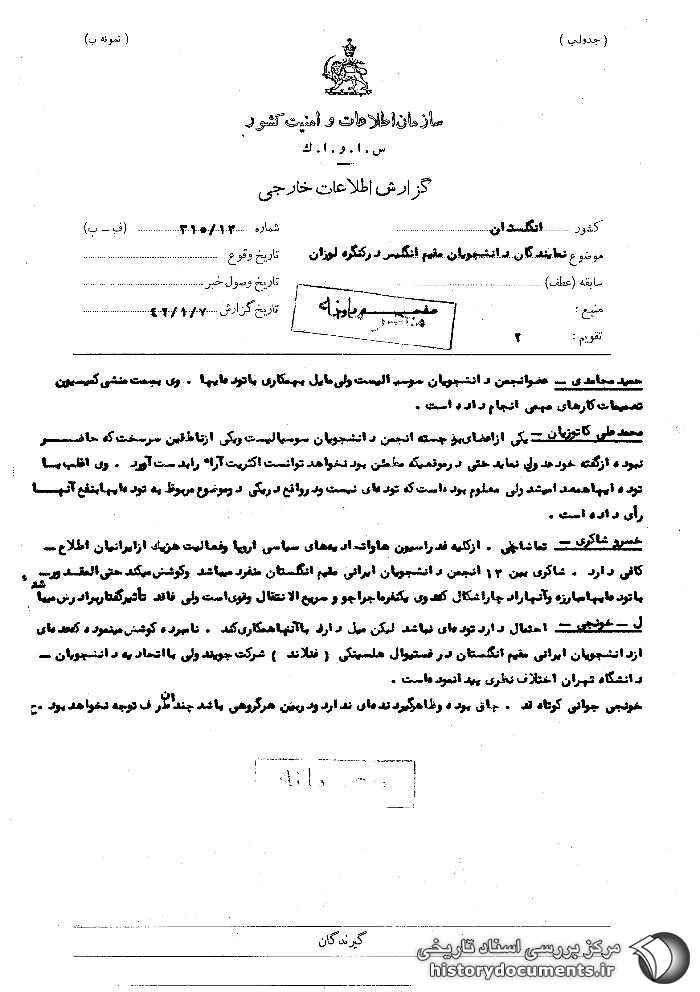 ( جدولی )
( نمونه ب )
سازمان اطلاعات و امنیت کشور
س . ا . و . ا . ك
گزارش اطلاعات خارجی
کشور انگلستان
شماره ۳۱۵/۱۲ (ف - ب)
موضوع نمایندگان دانشجویان مقیم انگلیس در کنگره لوزان
تاریخ وقوع
سابقه (عطف)
تاریخ وصول خبر
منبع :
تاریخ گزارش ۴۲/۱/۷
تقویم : ۲
حمید محامدی - عضو انجمن دانشجویان سوسیالیست ولی مایل بهمکاری با توده ایها . وی بسمت منشی کمیسیون
تصمیمات کارهای مهمی انجام داده است .
محمد علی کاتوزیان - یکی از اعضای برجسته انجمن دانشجویان سوسیالیست ویکی از ناطقین سرسخت که حاضر
نبوده از گفته خود عدولی نماید حتی در موقعیکه مطمئن بود نخواهد توانست اکثریت آراء رابدست آورد . وی اغلب با
توده ایها همصدا میشد ولی معلوم بوده است که توده ای نیست ودر واقع در یکی دو موضوع مربوط به توده ایها بنفع آنها
رأی داده است .
خسرو شاکری - تماشاچی . از کلیه فدراسیون ها و اتحادیه های سیاسی اروپا وفعالیت هر یک از ایرانیان اطلاع -
کافی دارد . شاکری بین ۱۲ انجمن دانشجویان ایرانی مقیم انگلستان منفرد میباشد وکوشش میکند حتی المقدور -
با توده ایها مبارزه وآنها را دچار اشکال کند وی یکنفر ماجراجو و سریع الانتقال وقوی است ولی فاقد تأثیر گفتار برادرش میباشد
ل - خونجی - احتمال دارد توده ای نباشد لیکن میل دارد با آنها همکاری کند . نامبرده کوشش مینموده که عده ای
از دانشجویان ایرانی مقیم انگلستان در فستیوال هلسینکی ( فنلاند ) شرکت جویند ولی با اتحادیه دانشجویان -
دانشگاه تهران اختلاف نظری پیدا نموده است .
خونجی جوانی کوتاه قد . چاق بوده وظاهر گیرنده ای ندارد ودر بین هر گروهی باشد چندان طرف توجه نخواهد بود . ح
گیرندگان
مرکز بررسی اسناد تاریخی
historydocuments.ir